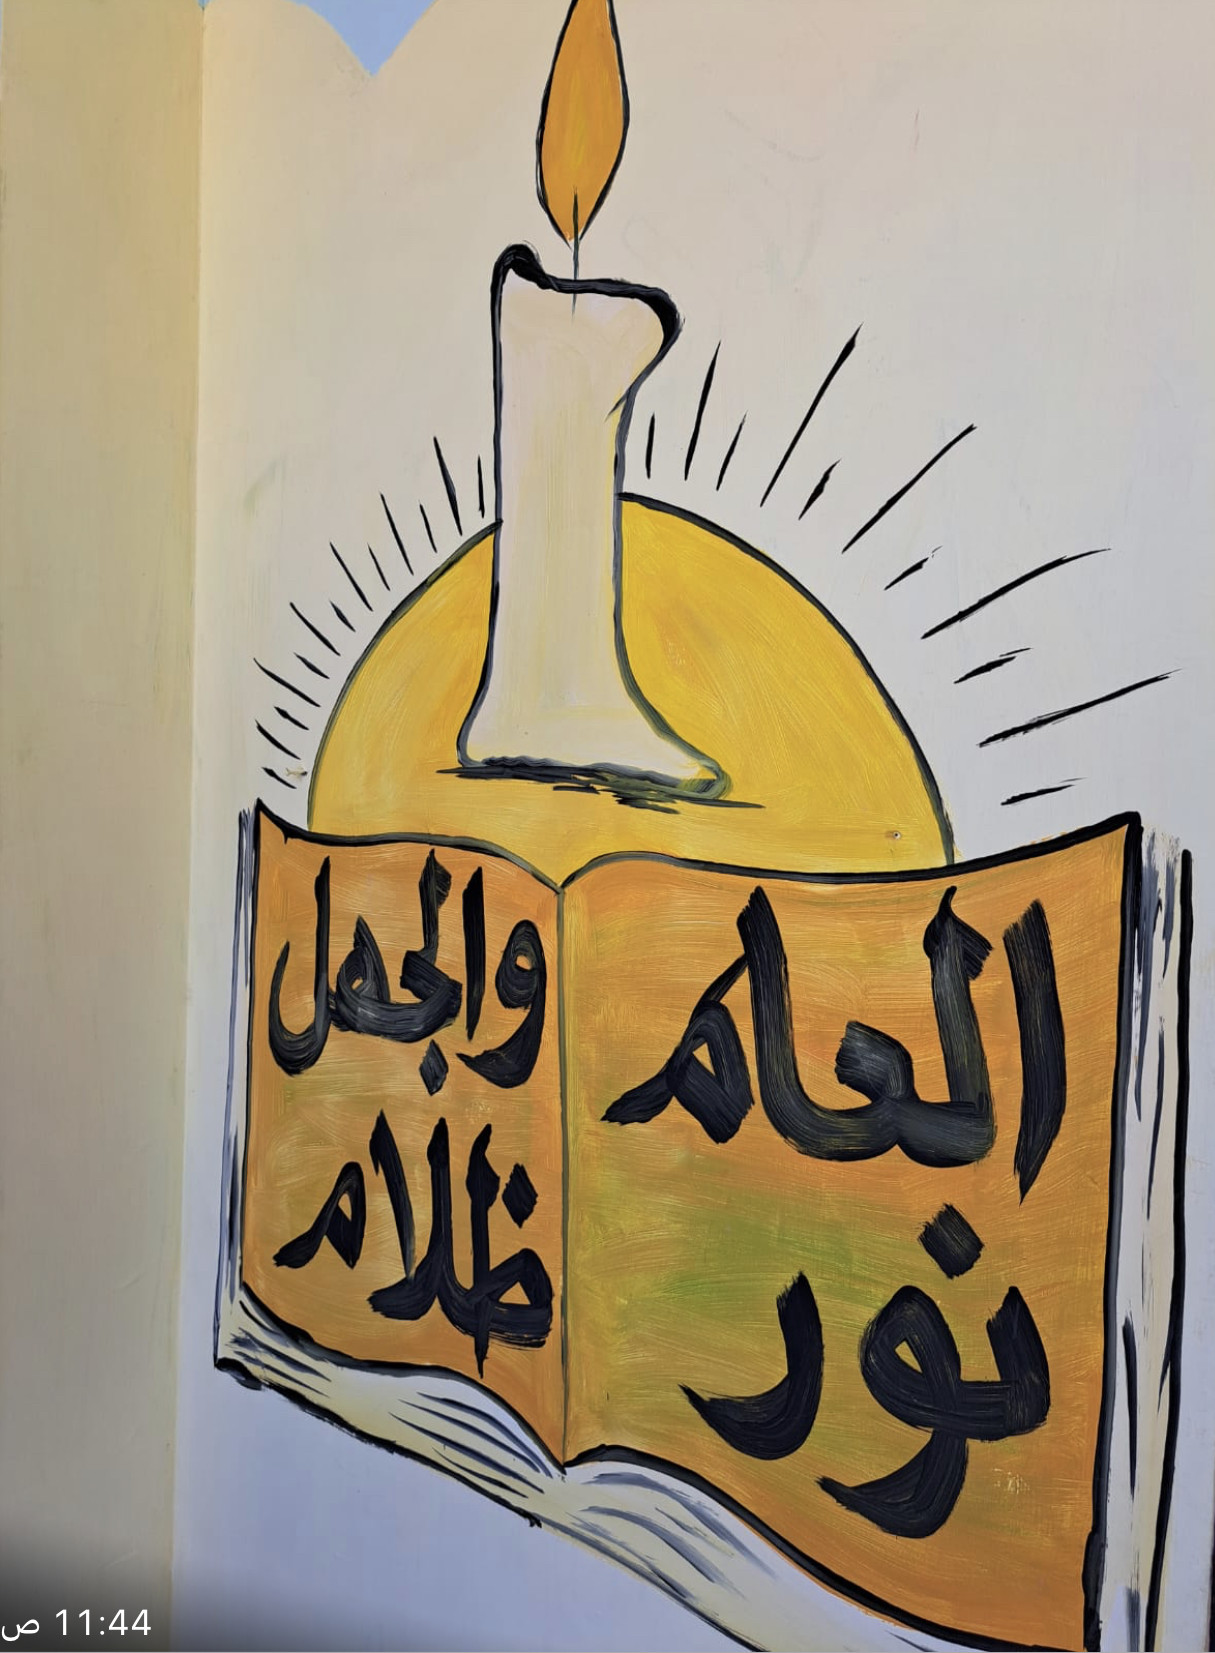 العلم
نور
والجهل
ظلام
11:44 ص